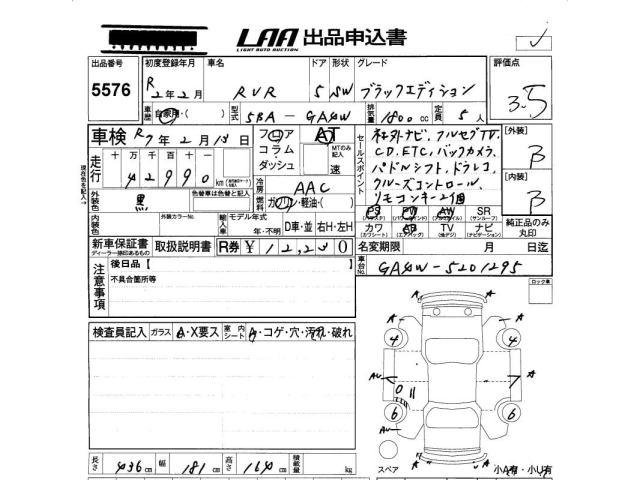 LAA 出品申込書
LIGHT AUTO AUCTION
出品番号 初度登録年月 車名 ドア 形状 グレード 評価点
5576 R2年2月 RVR 5 SW ブラックエディション 3.5
車歴 自家用・( ) 型式 5BA-GA4W 排気量 1800 cc 定員 5人
車検 R7年2月13日 フロア コラム ダッシュ AT MTのみ記入 速
セールスポイント
社外ナビ、フルセグTV
CD、ETC、バックカメラ
パドルシフト、ドラレコ
クルーズコントロール
リモコンキー2個
[外装] B
[内装] B
走行 十 万 千 百 十 一
42990 km
冷房 AAC
現在色を記入
外装色 黒 色替車は色替と記入
燃料 ガソリン・軽油・( )
PS PW AW SR
カワ AB TV ナビ
純正品のみ丸印
内装色 外装カラーNo. 輸入車 モデル年式 年・不明 D車・並 右H・左H
新車保証書 取扱説明書 R券 ¥12,230
ディーラー捺印あるもの
名変期限 月 日迄
車台No. GA4W-5201295
注意事項 後日品【
不具合箇所等
ロック車
検査員記入 ガラス A・X要ス 室内シート A・コゲ・穴・汚れ・破れ
A A
4 4
A A
AU A
6 6
AU A
長さ 436 cm 幅 181 cm 高さ 164 cm 積載量 kg
スペア 小A有・小U有